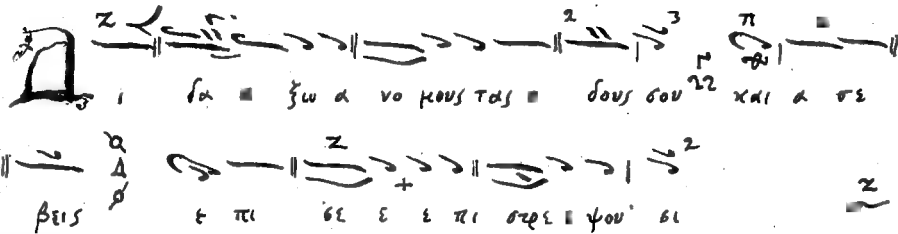 Δι δα ξω α νο μους τας ο δους σου και α σε
βεις ε πι σε ε ε πι στρε ψου σι